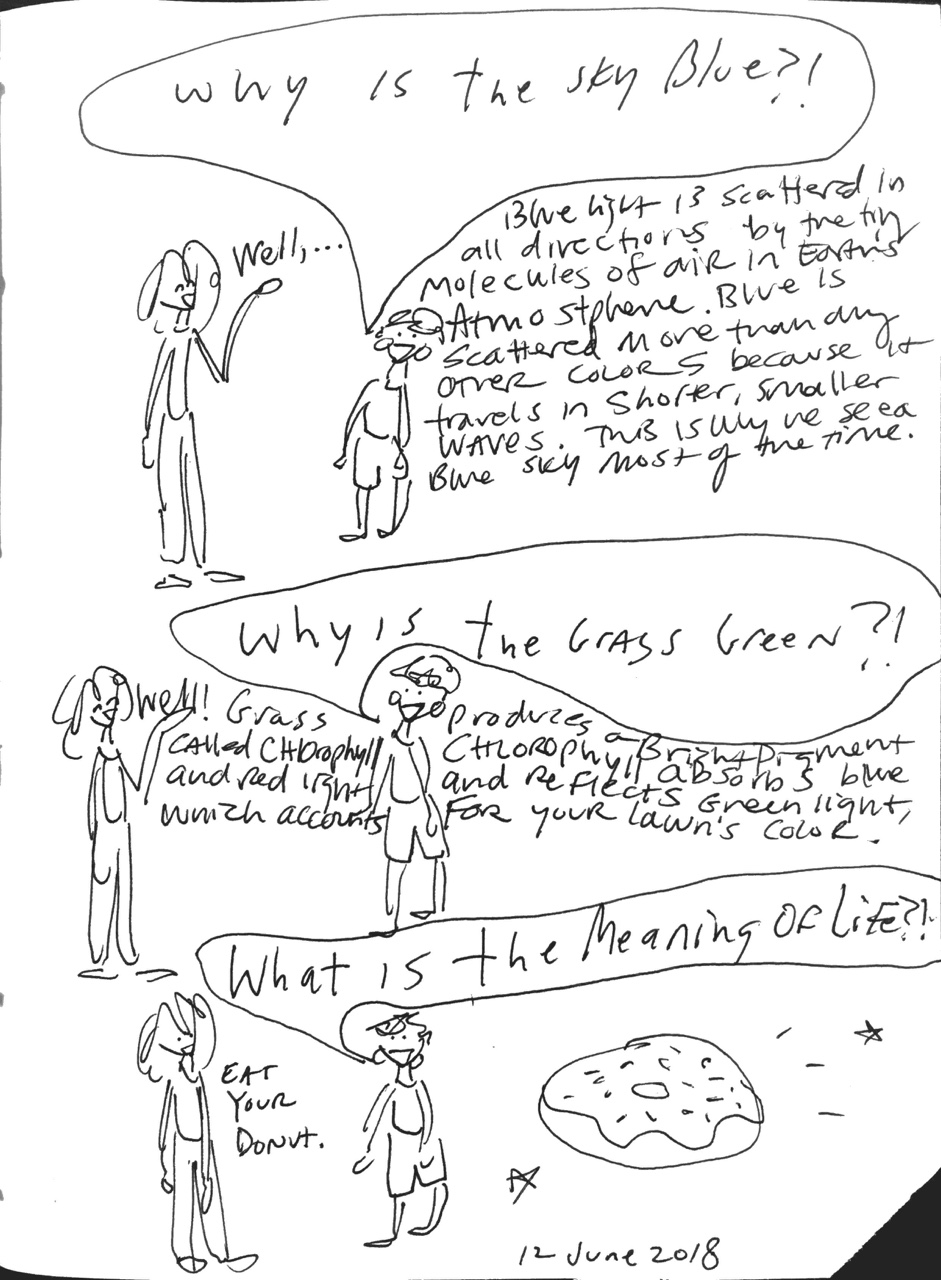 Why is the sky Blue?!
Well,...
Blue light is scattered in
all directions by the tiny
Molecules of air in Earth's
Atmostphere. Blue is
Scattered more than any
other colors because it
travels in Shorter, smaller
waves. This is why we see a
Blue sky most of the time.
Why is the Grass Green?!
Well! Grass produces a Bright Pigment
called CHlorophyll CHLOROPHyll absorbs blue
and red light and reflects Green light,
which accounts For your lawn's color.
What is the Meaning Of Life?!
EAT
YOUR
DONUT.
12 June 2018